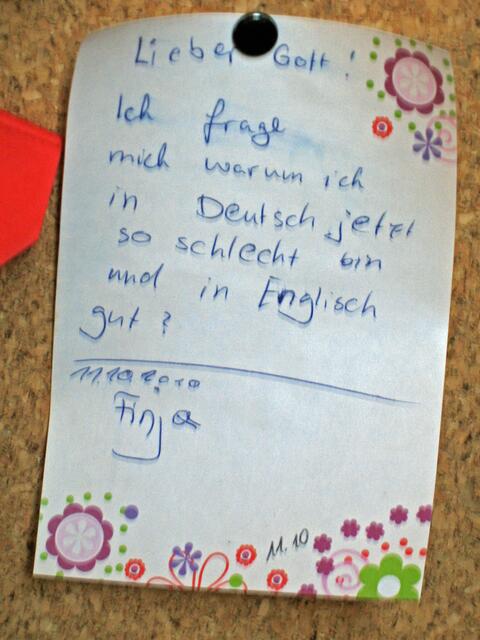 Lieber Gott!
Ich frage
mich warum ich
in Deutsch jetzt
so schlecht bin
und in Englisch
gut?
11.10.2010
Finja
11.10